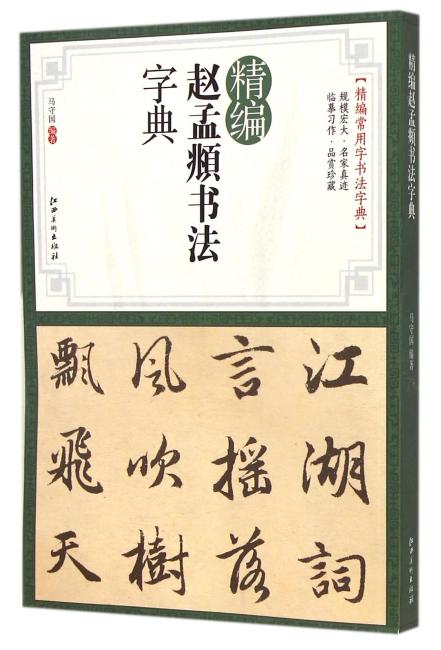 精编
赵孟頫书法
字典
【精编常用字书法字典】
规模宏大·名家真迹
临摹习作·品赏珍藏
马守国 编著
江西美术出版社
江湖詞
言摇落
风吹樹
飄飛天
精编赵孟頫书法字典
马守国 编著
江西美术出版社